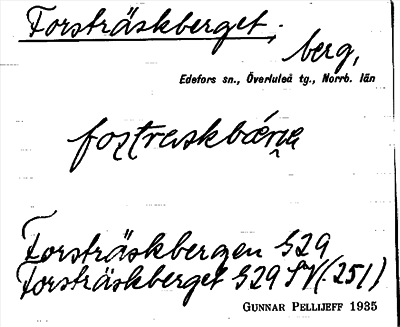 Forsträskberget,
berg,
Edefors sn., Överluleå tg., Norrb. län
Forsträskbergen
Forsträskberget SV (251)
GUNNAR PELLIJEFF 1935